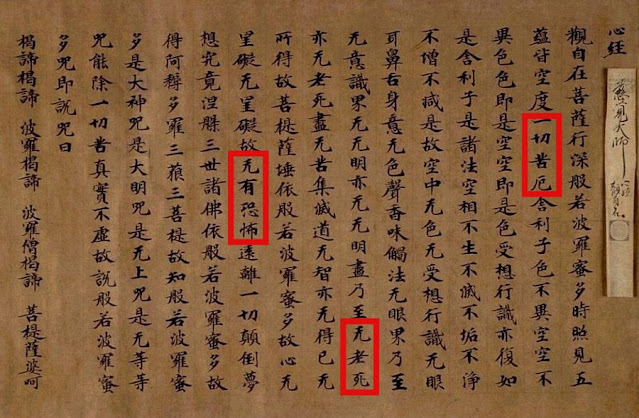 慈覺大師
心经
觀自在菩薩行深般若波羅蜜多時照見五
蘊皆空度一切苦厄舍利子色不異空空不
異色色即是空空即是色受想行識亦復如
是舍利子是諸法空相不生不滅不垢不淨
不增不減是故空中无色无受想行識无眼
耳鼻舌身意无色聲香味觸法无眼界乃至
无意識界无无明亦无无明盡乃至无老死
亦无老死盡无苦集滅道无智亦无得已无
所得故菩提薩埵依般若波羅蜜多故心无
罣礙无罣礙故无有恐怖遠離一切顛倒夢
想究竟涅槃三世諸佛依般若波羅蜜多故
得阿耨多羅三藐三菩提故知般若波羅蜜
多是大神咒是大明咒是无上咒是无等等
咒能除一切苦真實不虛故說般若波羅蜜
多咒即說咒曰
揭諦揭諦 波羅揭諦 波羅僧揭諦 菩提薩婆呵